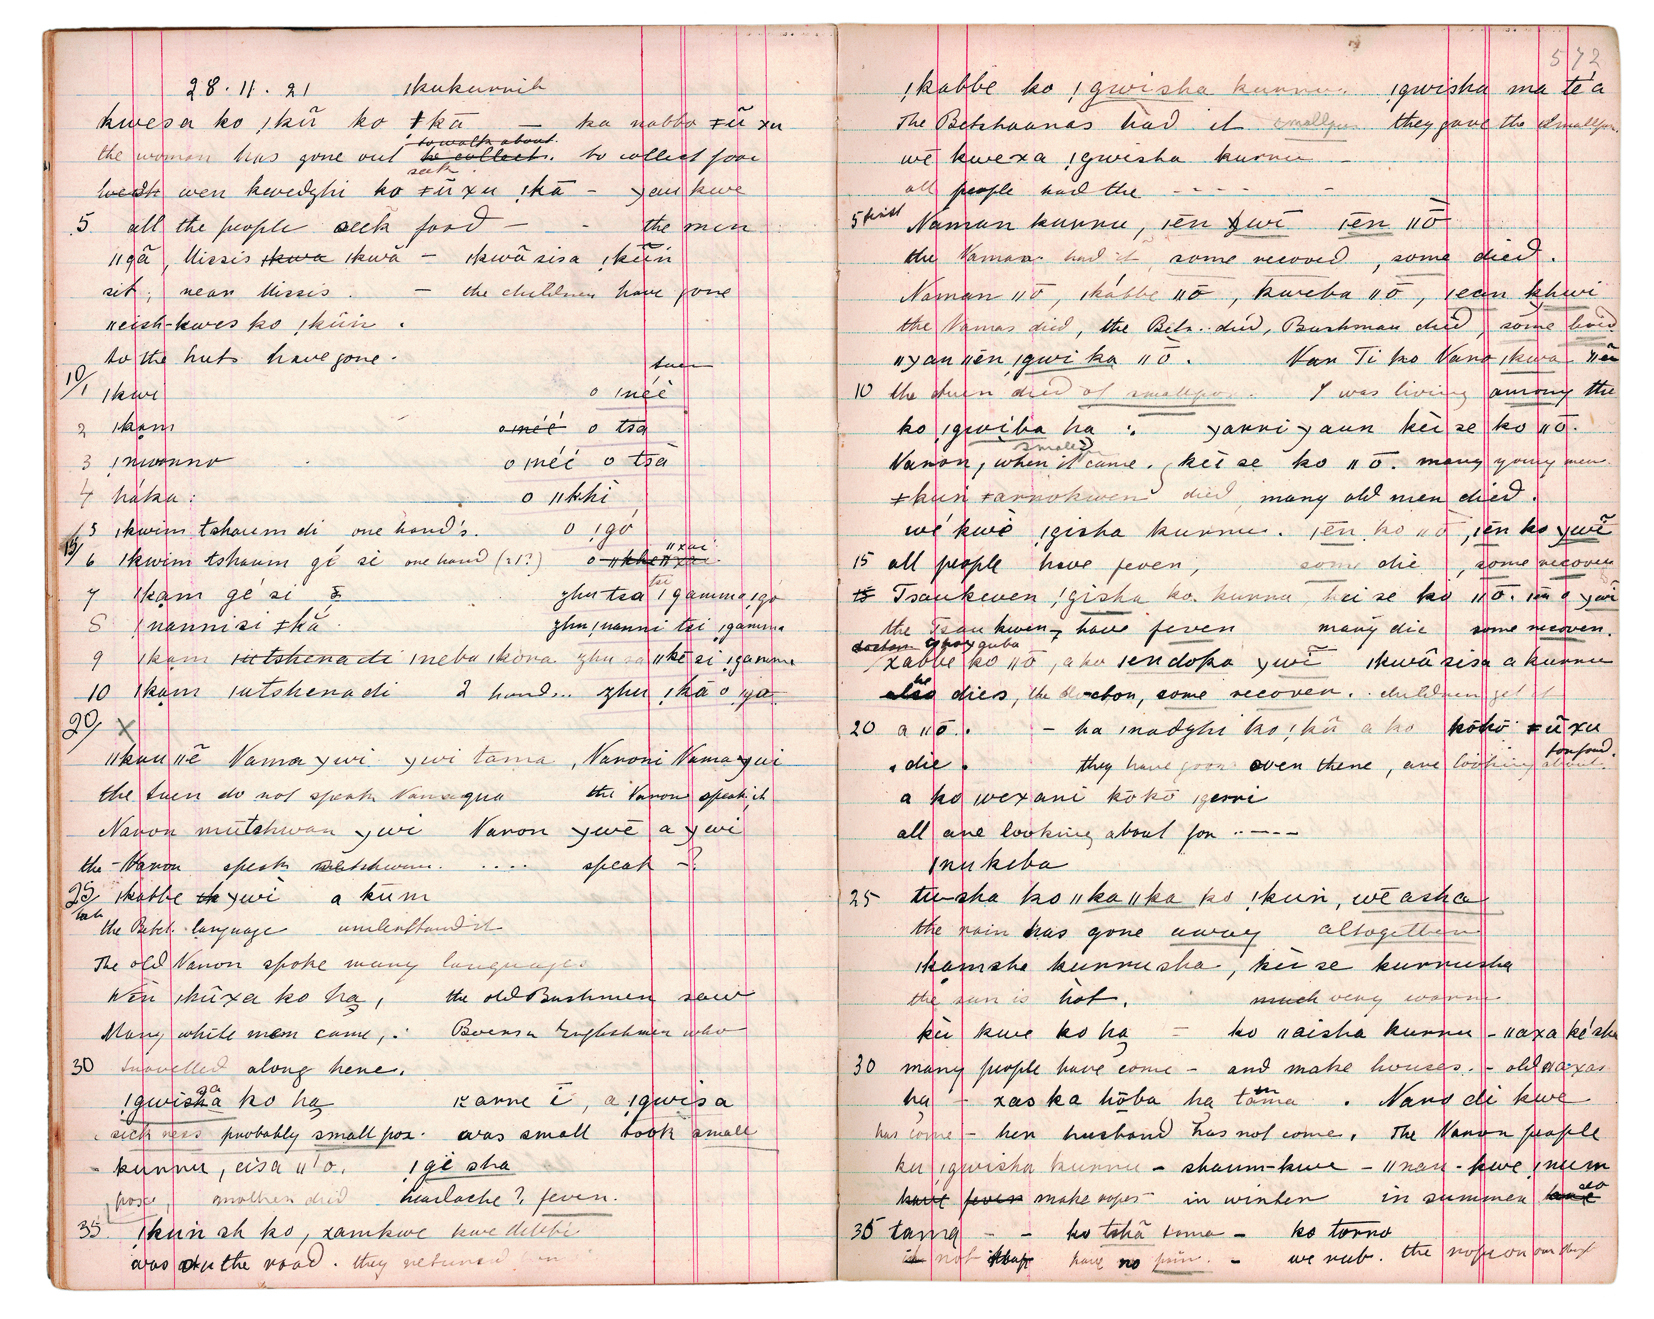 28.11.21 ǀkukurrib
kwesa ko ǀkũ ko ǂkā — ka nabba ǂũ xu
to walk about
the woman has gone out to collect. to collect food
seek
wen kwedzhi ko ǂũxu ǀkā — yau kwe
5 all the people seek food — - the men
ǁgã, Missis ǀkwa ǀkwā — ǀkwãsisa ǀkũn
sit; near Missis. — the children have gone
ǁeish-kwes ko ǀkũn.
to the huts have gone.
tuen
10/1 ǀkwe o ǀnéè
2 ǀkam o ǀnéé o tsa
3 ǀnwonno o ǀnéé o tsā
4 háka: o ǁkhì
5 ǀkwim tshaum di one hand's. o ǀgó
ǁxai
15/6 ǀkwim tshaum gé si one hand (21?) o ǁkhe ǁxai
7 ǀkam gé si zhu tsa tsi ǀgamma ǀgó
8 ǀnannisi ǂkā zhu ǀnanni tsi ǀgamma
9 ǀkam ǀutshenadi ǀnebu ǀkona zhu sa ǁkē si ǀgamma
10 ǀkam ǀutshenadi 2 hands.. zhu ǀkā o ya
20/ X
ǁkau ǁẽ Nama ywi ywi tama, Naroni Nama ywi
the tuen do not speak Namaqua the Naron speak it
Naron mutshwan ywi Naron ywē a ywi
the Naron speak setshwana. .... speak —?
25 ǀkabbe ywī a kum
the Betch. language understand it
The old Naron spoke many languages
Wēn ǀkũxa ko ha, the old Bushmen saw
Many white men came,: Boers & Englishmen who
30 travelled along here.
ga
ǀgwisha ko ha xarre ī, a ǀgwisa
sickness probably small pox. was small took small
kurru, eisa ǁō. ǀgē sha
pox, mother died headache?, fever.
35 ǀkun sh ko, xamkwe kwe debbi
was on the road. they returned
572
ǀkabbe ko ǀgwisha kurru. ǀgwisha ma té a
The Betshuanas had it smallpox they gave the smallpox.
wē kwexa ǀgwisha kurru —
all people had the - - - - -
5 Naman kurru, ǀēn ywī ǀēn ǁō
the Namas had it, some recoved, some died.
Naman ǁō, ǀkábbe ǁō, kweba ǁō, ǀean khwi
the Namas died, the Bets.. died, Bushman died, some lived
ǁyan ǁēn ǀgwi ka ǁō. Nan Ti ko Naro ǀkwa ǁēi
10 the tuen died of smallpox. I was living among the
ko ǀgwiba ha :. yarri yaun kēi se ko ǁō.
Naron, when it came. kēi se ko ǁō. many young men
ǂkun ǂarrokwen died, many old men died.
wé kwè ǀgisha kurru. ǀēn ko ǁō, ǀēn ko ywī
15 all people have fever, some die, some recover
Tsaukwen ǀgisha ko kurru, kei se ko ǁō. ǀēn o ywī
the Tsaukwen have fever many die some recover.
doctor
xabbe ko ǁō, a ko ǀendoka ywī ǀkwā sisa a kurru
dies, the doctor, some recover. children get it
20 a ǁō. — ha ǀnadzhi ko ǀkũ a ko kōkō ǂũxu
for food.
die. they have gone over there, are looking about
a ko wexani kōkō ǀgerri
all are looking about for ..---
ǀnukeba
25 tusha ko ǁka ǁka ko ǀkun, wē asha
the rain has gone away altogether
ǀkamsha kurrusha, kēi se kurrusha
the sun is hot. much very warm
kēi kwe ko ha — ko ǁaisha kurru - ǁaxa ké sha
30 many people have come — and make houses. - old ǁaxas
ha - xas ka kōba ha tama. Naro di kwe
has come — her husband has not come. The Naron people
ku ǀgwisha kurru — shaum-kwe — ǁnau-kwe ǀnum
have fever make ropes in winter in summer do
35 tama - - ko tshā toma — ko torro
not have no pain. — we rub. the rope on our thigh